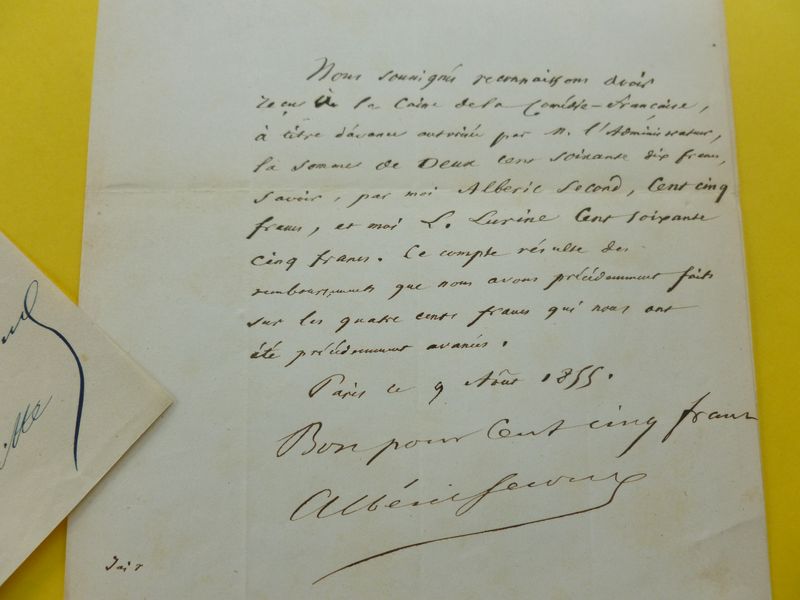 Nous soussignés reconnaissons avoir
reçus de la Caisse de la Comédie-Française,
à titre d'avance autorisée par M. l'Administrateur,
la somme de Deux cent soixante dix francs,
savoir, par moi Albéric Second, Cent cinq
francs, et moi L. Lurine Cent soixante
cinq francs. Ce compte résulte des
remboursements que nous avons précédemment faits
sur les quatre cents francs qui nous ont
été précédemment avancés.
Paris le 9 Août 1855.
Bon pour Cent cinq francs
Albéric Second